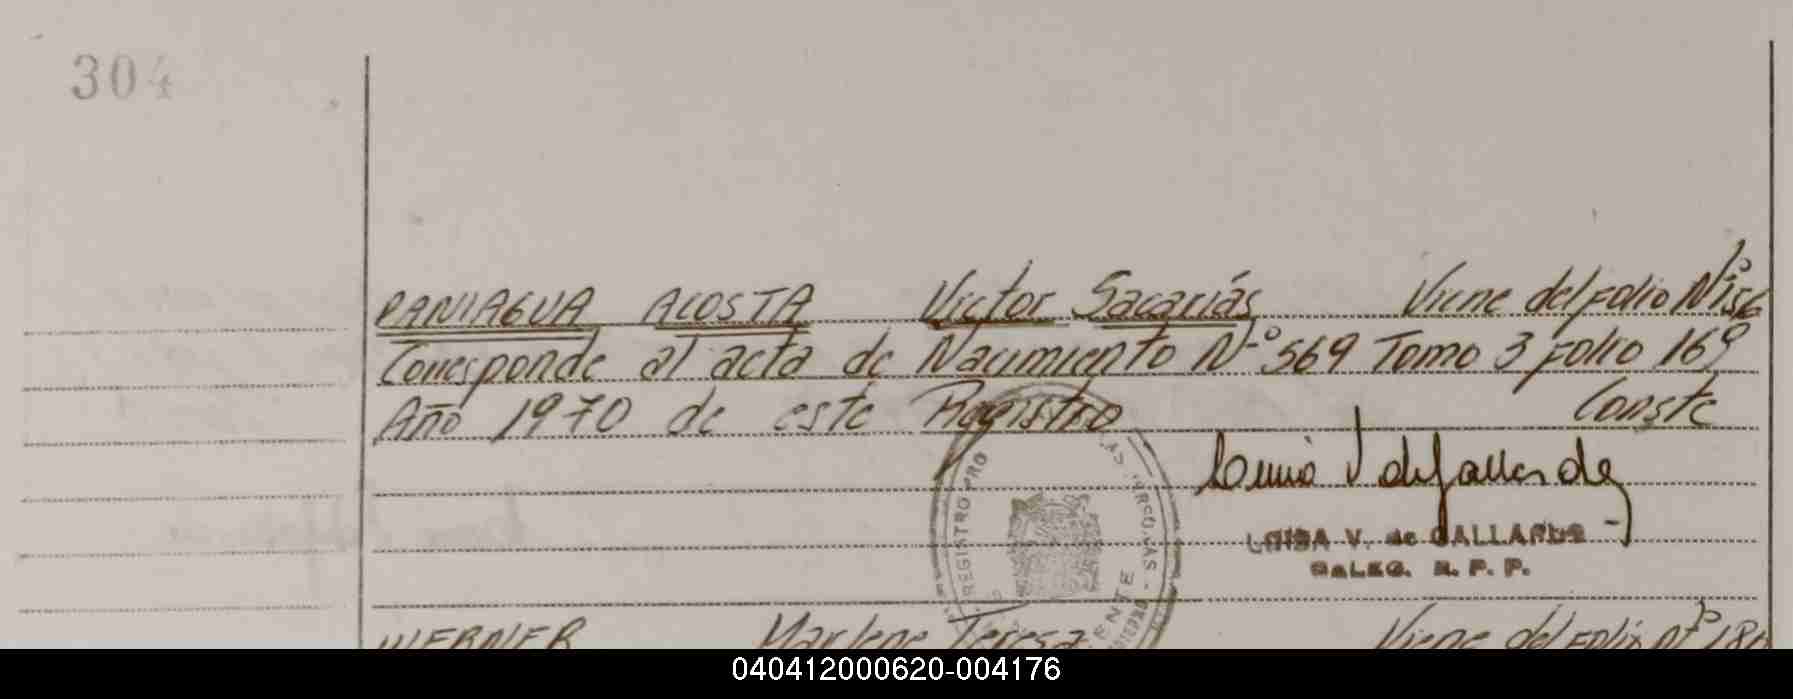 304
PANIAGUA ACOSTA Victor Sacariás Viene del Folio Nº 156
Corresponde al acta de Nacimiento Nº 569 Tomo 3 Folio 169
Año 1970 de este Registro Conste
REGISTRO PRO
V. de GALLARDO
R. P. P.
ENTE
WERNER Marlene Teresa Viene del Folio Nº
040412000620-004176